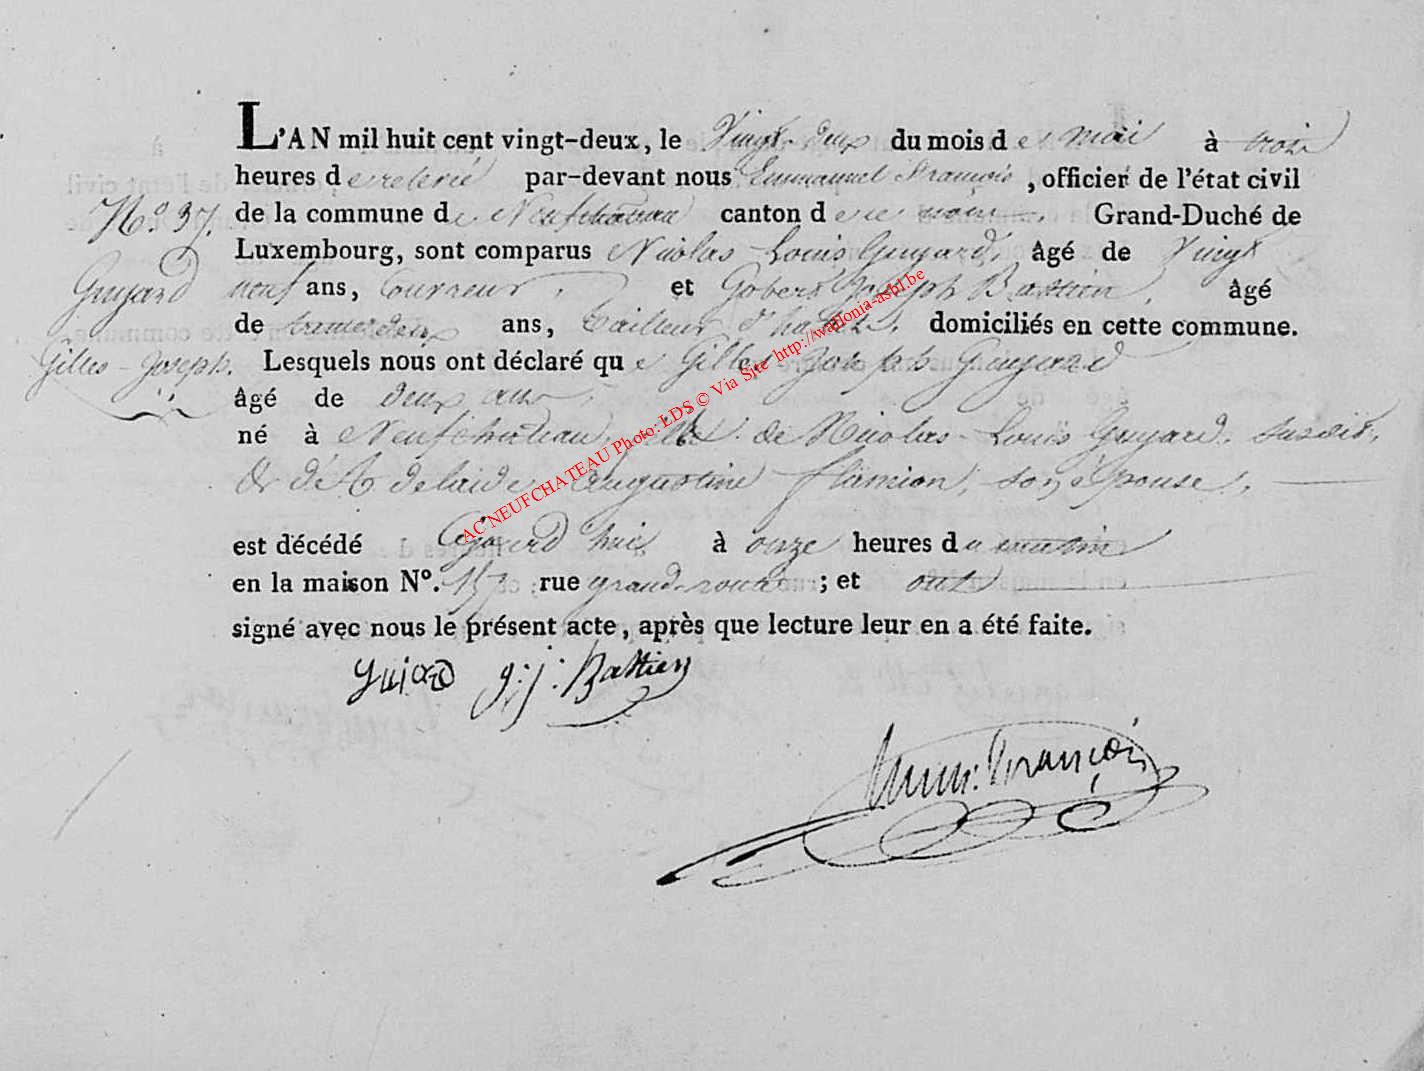 L'AN mil huit cent vingt-deux, le Vingt-deux du mois de mai à trois
heures de relevée par-devant nous Emmanuel François, officier de l'état civil
N.° 37. de la commune de Neufchateau canton de ce nom. Grand-Duché de
Luxembourg, sont comparus Nicolas-Louis Guyard, âgé de Vingt
Guyard neuf ans, Couvreur, et Gobert Joseph Bastien, âgé
de trente deux ans, Tailleur d'habits, domiciliés en cette commune.
Gilles-Joseph. Lesquels nous ont déclaré que Gilles Joseph Guyard
âgé de deux ans,
né à Neufchateau, de Nicolas-Louis Guyard, susdit,
& d'Adelaide Augustine flamion, son épouse,
est décédé à onze heures du matin
en la maison N°. 157 rue grand-; et ont
signé avec nous le présent acte, après que lecture leur en a été faite.
Guiard g: j: Bastien
Emm: François
AC NEUFCHATEAU Photo: LDS © Via Site http://wallonia-asbl.be